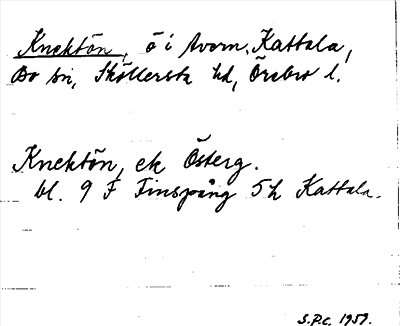 Knektön, ö i Avern, Kattala,
Bo sn, Sköllersta hd, Örebro l.
Knektön, ek Österg.
bl. 9 F Finspång 5h Kattala.
S.P.C. 1959.